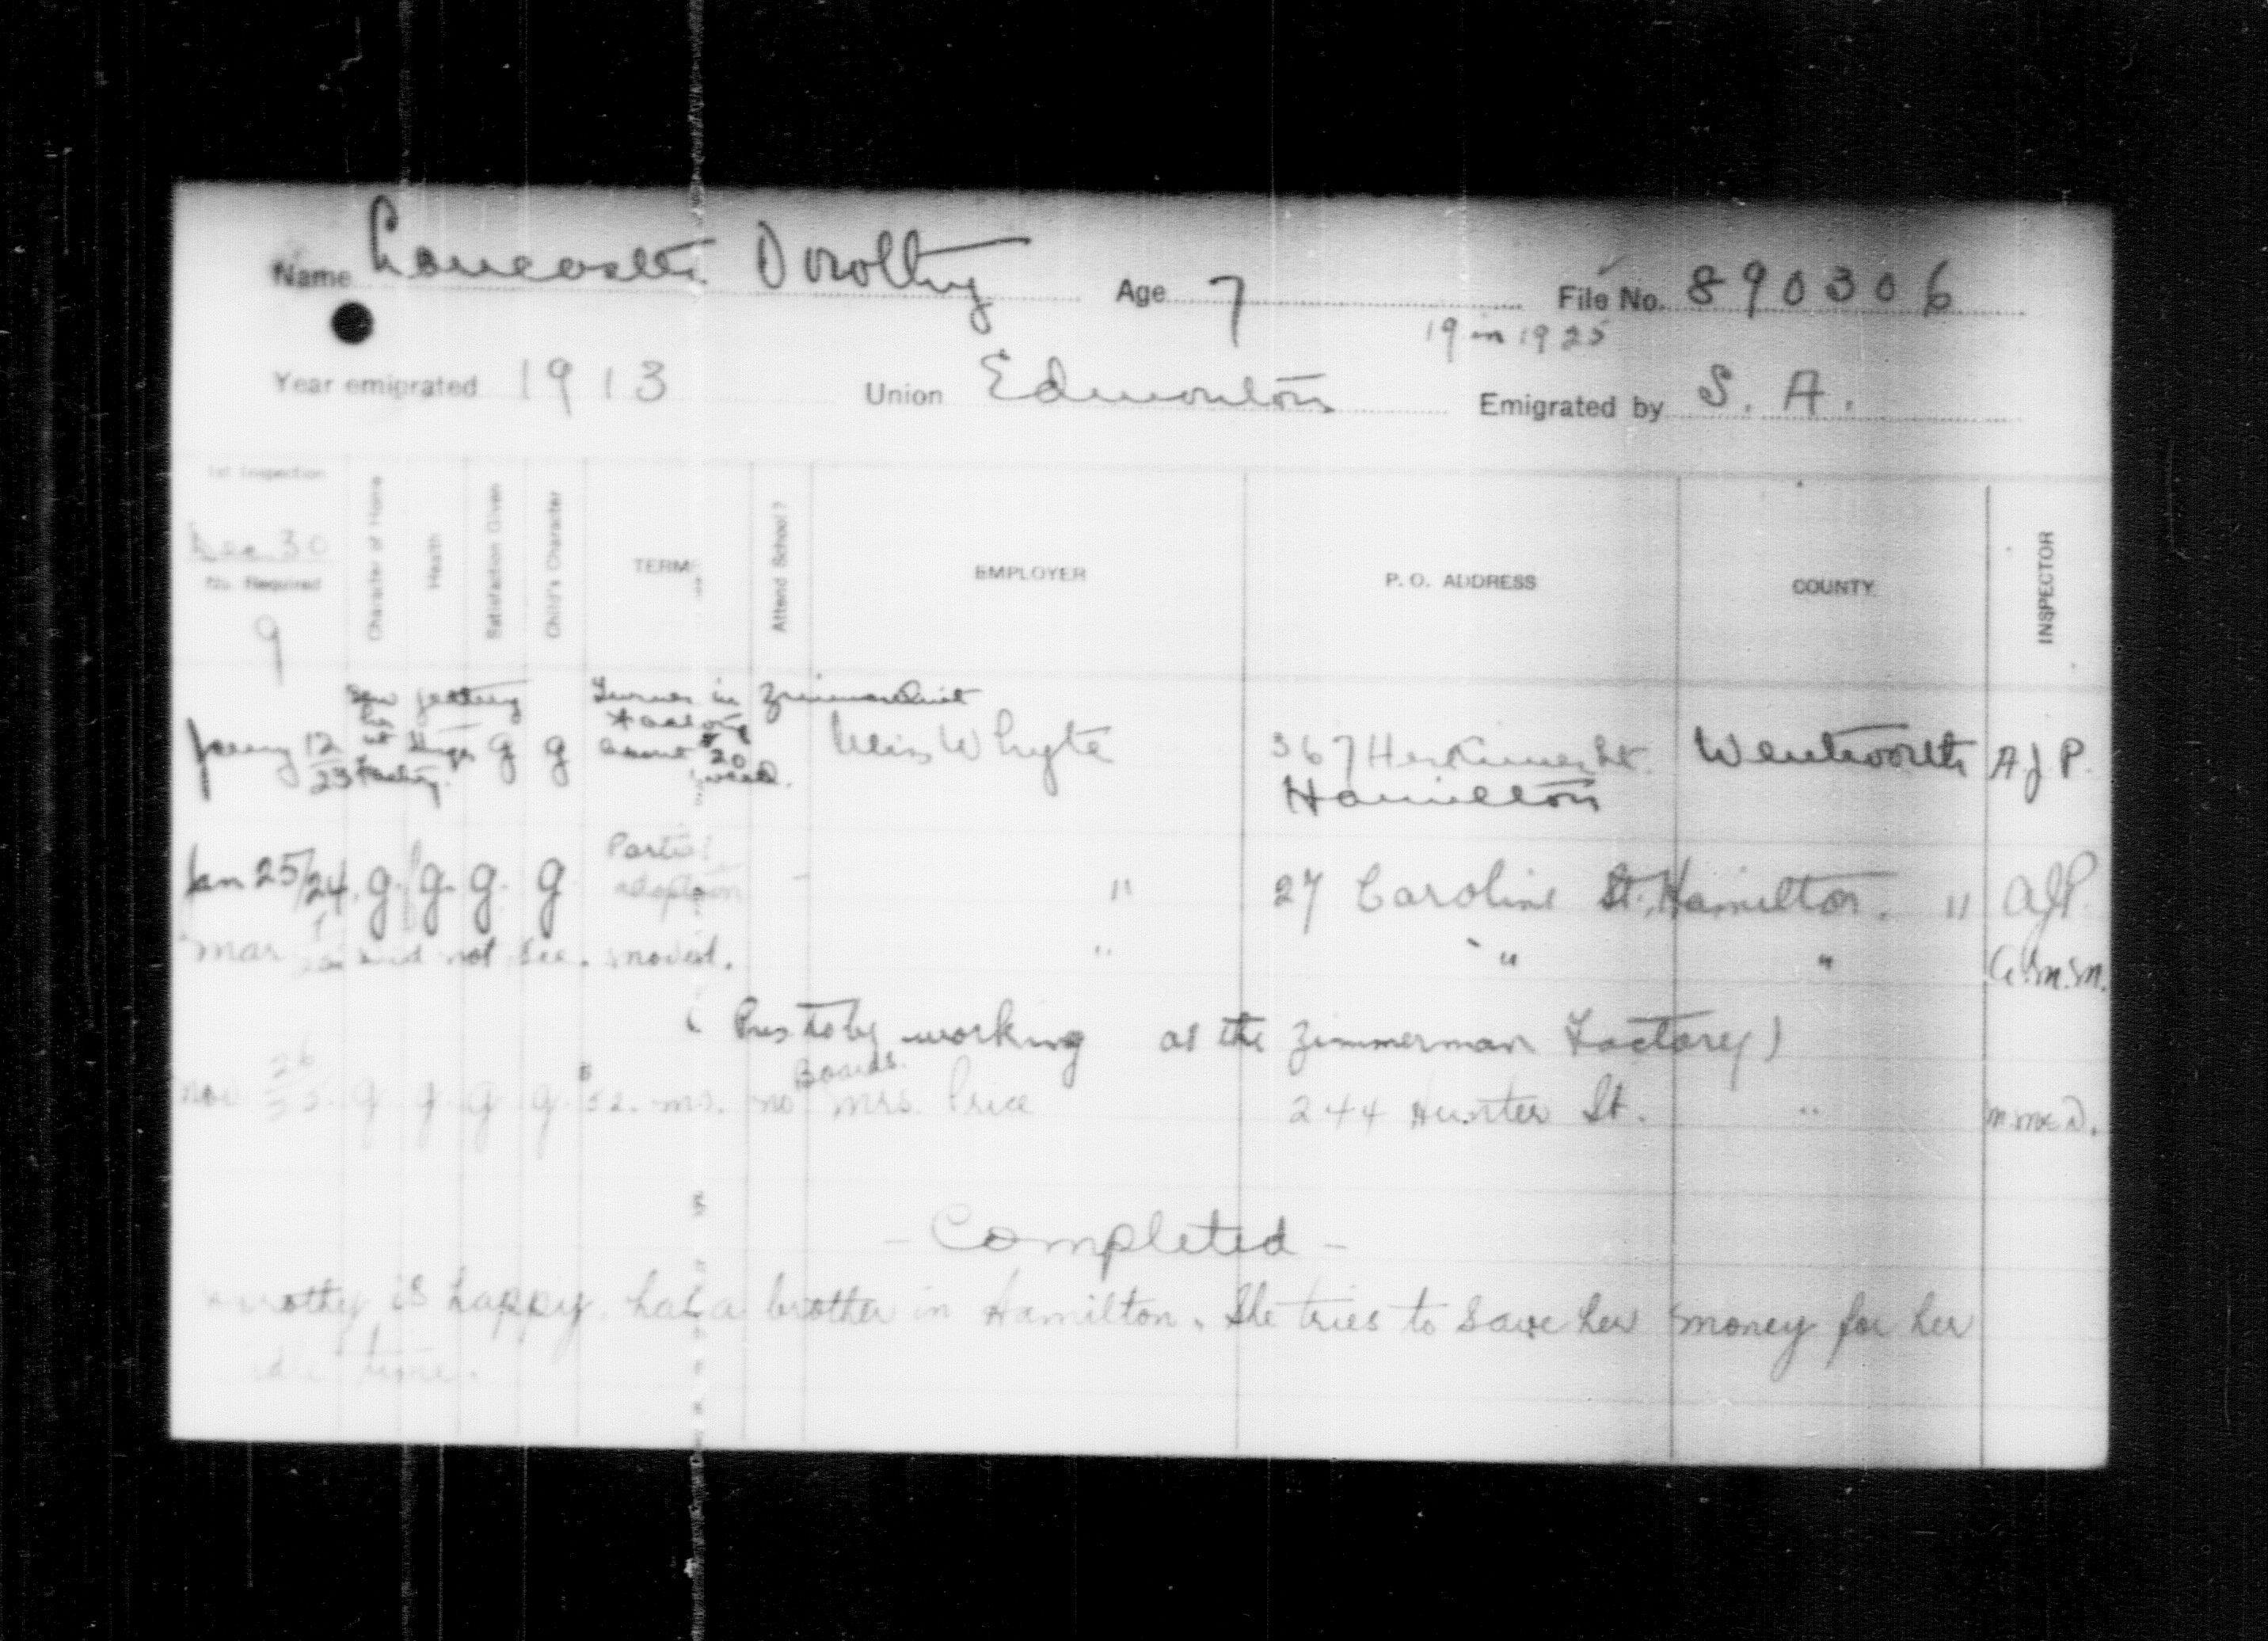 Name Lancaster Dorothy Age 7 File No. 890306
19 in 1925
Year emigrated 1913 Union Edmonton Emigrated by S. A.
1st Inspection
Dec. 30
No. Required
9
Character of Home
Health
Satisfaction Given
Child's Character
TERMS
Attend School?
EMPLOYER
P. O. ADDRESS
COUNTY
INSPECTOR
in
about $20 week.
12/23 factory. g g Miss Whyte 367 Herkimer St. Wentworth A J P.
Hamilton
Jan 25/24. g. g. g. g Partial adoption - " 27 Caroline St. Hamilton. " AJP.
Mar did not see. moved. " " " A.M.M.
working at the Zimmerman Factory)
Boards
Nov 26/25. g g g g $52. mo. no Mrs. Price 244 Hunter St. " M.McD.
- Completed -
Dorothy is happy. has a brother in Hamilton. She tries to save her money for her
idle time.